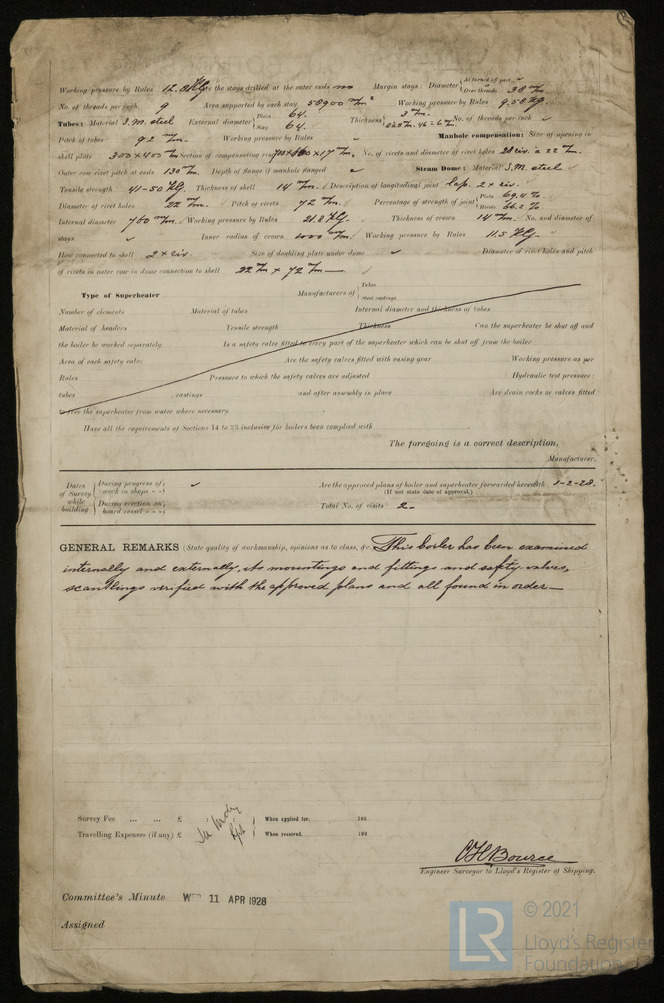 Working pressure by Rules 12.8 Kg Are the stays drilled at the outer ends no Margin stays: Diameter { At turned off part, or Over threads 38 m/m
No. of threads per inch 9 Area supported by each stay 58900 m/m² Working pressure by Rules 9.58 Kg.
Tubes: Material S.M. steel External diameter { Plain 64. Stay 64. Thickness { 3 m/m. No. of threads per inch ✓
Pitch of tubes 92 m/m. Working pressure by Rules ✓ Manhole compensation: Size of opening in
shell plate 300 x 400 m/m Section of compensating ring x 17 m/m No. of rivets and diameter of rivet holes 28 riv. a 22 m/m.
Outer row rivet pitch at ends 130 m/m. Depth of flange if manhole flanged ✓ Steam Dome: Material S.M. steel ✓
Tensile strength 41-50 Kg. Thickness of shell 14 m/m. Description of longitudinal joint lap. 2 x riv.
Diameter of rivet holes 22 m/m. Pitch of rivets 72 m/m. Percentage of strength of joint { Plate 69,4 % Rivets 66.2 %
Internal diameter 760 m/m. Working pressure by Rules 21.2 Kg. Thickness of crown 14 m/m. No. and diameter of
stays ✓ Inner radius of crown 1000 m/m. Working pressure by Rules 11.5 Kg.
How connected to shell 2 x riv. Size of doubling plate under dome ✓ Diameter of rivet holes and pitch
of rivets in outer row in dome connection to shell 22 m/m x 72 m/m
Type of Superheater Manufacturers of { Tubes Steel castings
Number of elements Material of tubes Internal diameter and thickness of tubes
Material of headers Tensile strength Thickness Can the superheater be shut off and
the boiler be worked separately Is a safety valve fitted to every part of the superheater which can be shut off from the boiler
Area of each safety valve Are the safety valves fitted with easing gear Working pressure as per
Rules Pressure to which the safety valves are adjusted Hydraulic test pressure:
tubes , castings and after assembly in place Are drain cocks or valves fitted
to free the superheater from water where necessary
Have all the requirements of Sections 14 to 23 inclusive for boilers been complied with
The foregoing is a correct description,
Manufacturer.
Dates of Survey while building { During progress of work in shops - - ✓ During erection on board vessel - - -
Are the approved plans of boiler and superheater forwarded herewith 1-2-28.
(If not state date of approval.)
Total No. of visits 2.
GENERAL REMARKS (State quality of workmanship, opinions as to class, &c. This boiler has been examined
internally and externally, its mountings and fittings and safety valves,
scantlings verified with the approved plans and all found in order
Survey Fee ... ... £ : : When applied for, 192
Travelling Expenses (if any) £ : : When received, 192
Rpt
C H Bource
Engineer Surveyor to Lloyd's Register of Shipping.
Committee's Minute WED 11 APR 1928
Assigned
LR © 2021
Lloyd's Register
Foundation